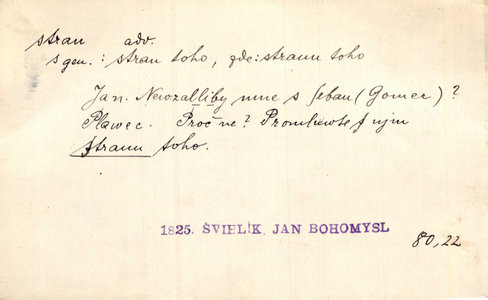 stran adv.
s gen.: stran toho, gde: stranu toho
Jan. Newozalliby mne s sebau (Gomer)?
Plawec. Proč ne? Promluwte s nim
stranu toho.
1825. SVIELIK, JAN BOHOMYSL
80, 22